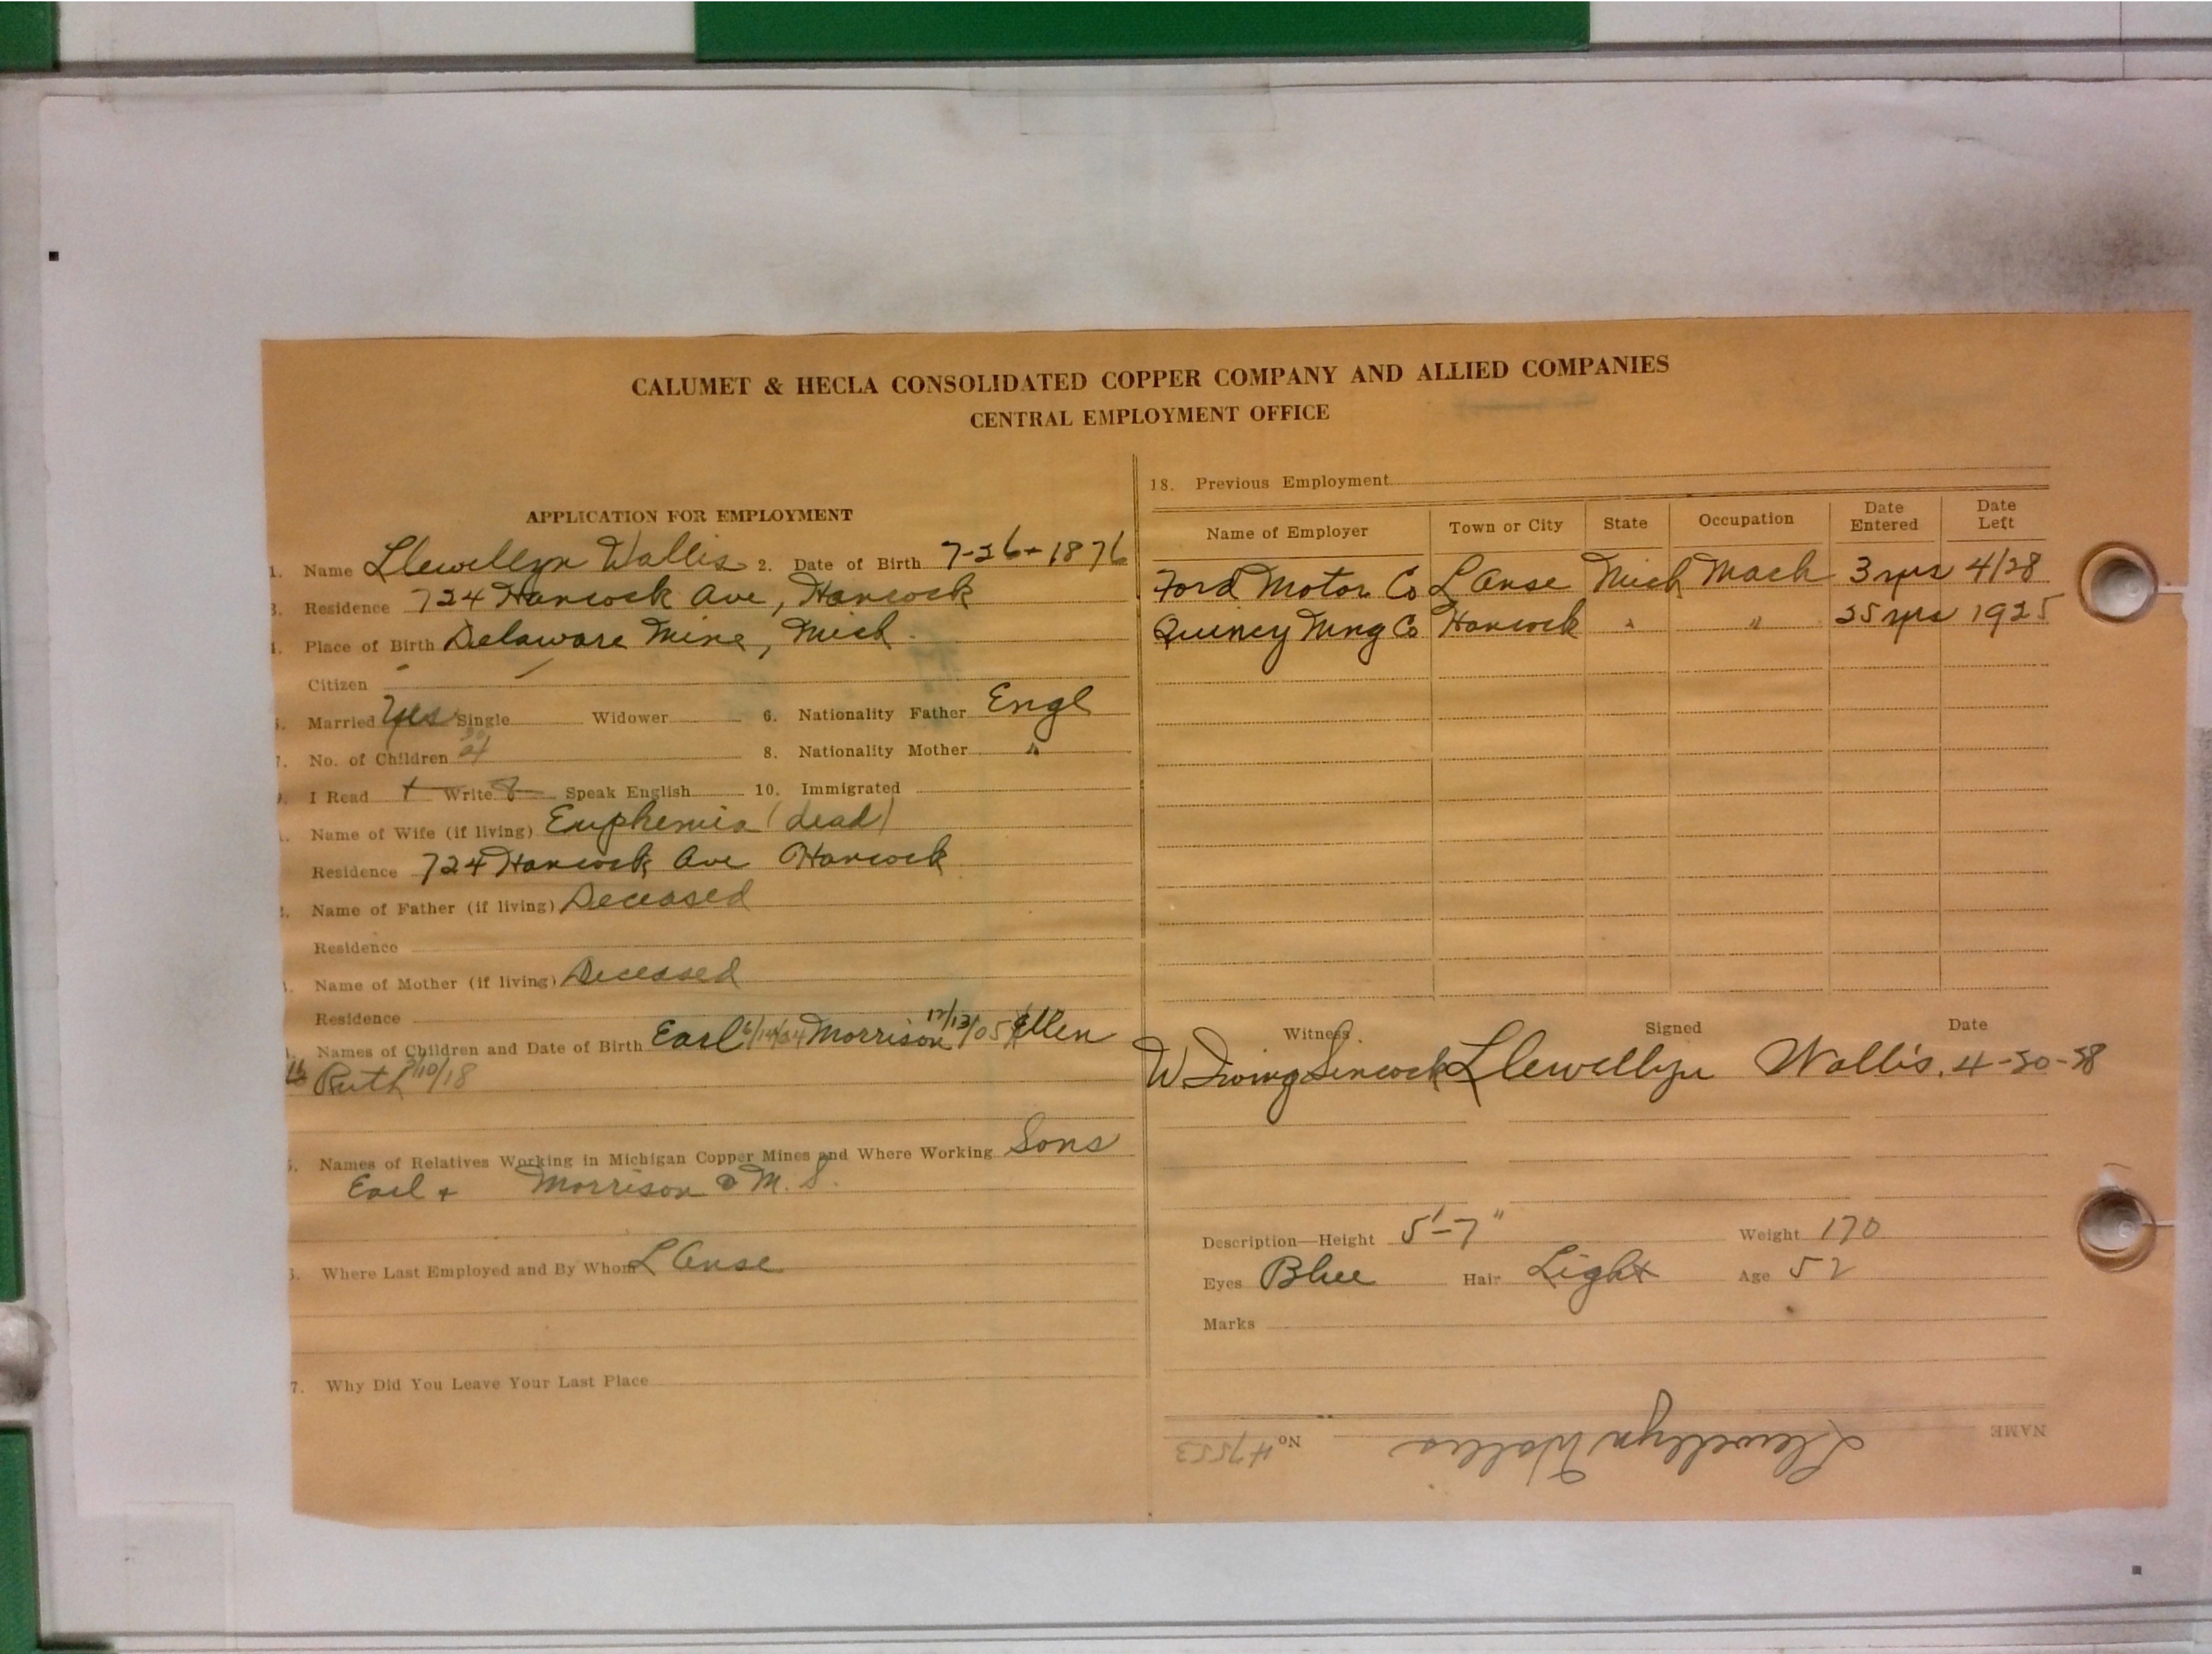 CALUMET & HECLA CONSOLIDATED COPPER COMPANY AND ALLIED COMPANIES
CENTRAL EMPLOYMENT OFFICE
APPLICATION FOR EMPLOYMENT
1. Name Llewellyn Wallis 2. Date of Birth 7-26-1876
3. Residence 724 Hancock Ave, Hancock
4. Place of Birth Delaware Mine, Mich.
Citizen
5. Married Yes Single Widower 6. Nationality Father Engl
7. No. of Children 8. Nationality Mother "
9. I Read + Write Speak English 10. Immigrated
Name of Wife (if living) Euphemia (dead)
Residence 724 Hancock Ave Hancock
Name of Father (if living) Deceased
Residence
Name of Mother (if living) Deceased
Residence
Names of Children and Date of Birth Earl 6/14/04 Morrison 12/13/05 Ellen
Ruth /10/18
Names of Relatives Working in Michigan Copper Mines and Where Working Sons
Earl + Morrison M. S.
Where Last Employed and By Whom L Anse
7. Why Did You Leave Your Last Place
18. Previous Employment
Name of Employer Town or City State Occupation Date Entered Date Left
Ford Motor Co L Anse Mich Mach 3 yrs 4/28
Quincy Mng Co Hancock " " 25 yrs 1925
Witness Signed Date
W Irving Sincock Llewellyn Wallis. 4-30-28
Description—Height 5'-7" Weight 170
Eyes Blue Hair Light Age 52
Marks
NAME Llewellyn Wallis No 47553